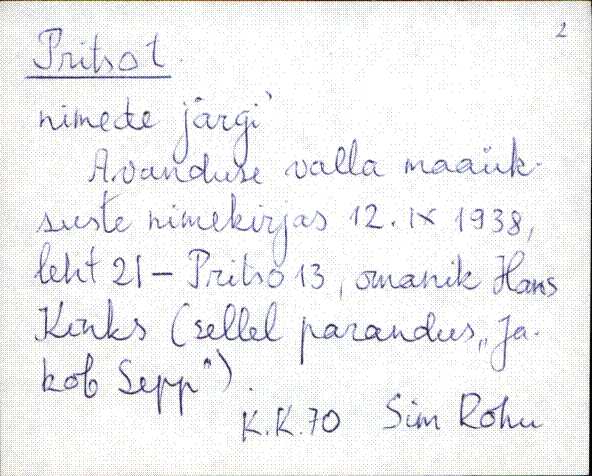 2
Pritso t.
nimede järgi
Avanduse valla maaük-
suste nimekirjas 12. IX 1938,
leht 21 – Pritso 13, omanik Hans
Kinks (sellel parandus „Ja-
kob Sepp").
K.K. 70 Sim Rohu